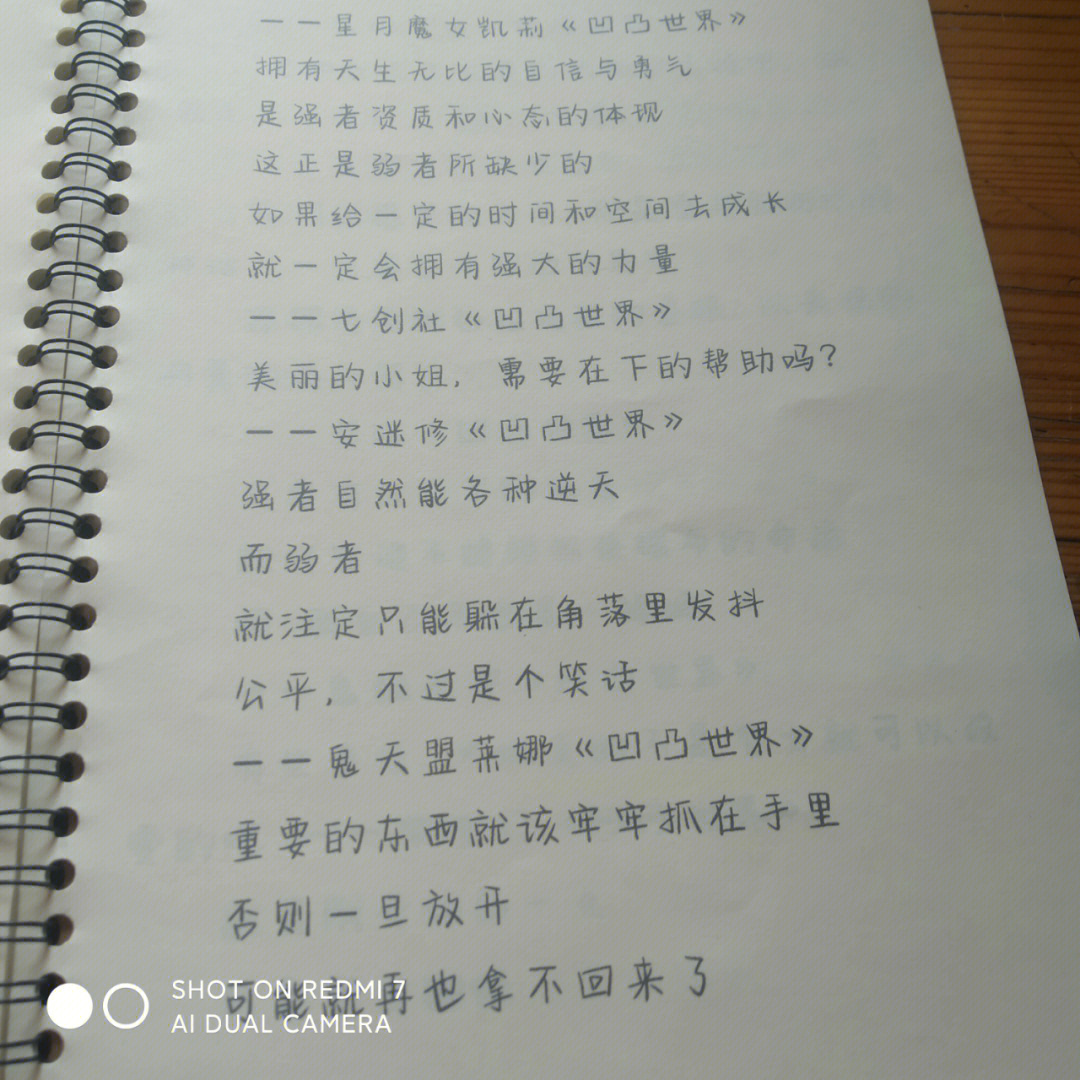 ——星月魔女凯莉《凹凸世界》
拥有天生无比的自信与勇气
是强者资质和心态的体现
这正是弱者所缺少的
如果给一定的时间和空间去成长
就一定会拥有强大的力量
——七创社《凹凸世界》
美丽的小姐，需要在下的帮助吗？
——安迷修《凹凸世界》
强者自然能各种逆天
而弱者
就注定只能躲在角落里发抖
公平，不过是个笑话
——鬼天盟莱娜《凹凸世界》
重要的东西就该牢牢抓在手里
否则一旦放开
可能就再也拿不回来了
SHOT ON REDMI 7
AI DUAL CAMERA